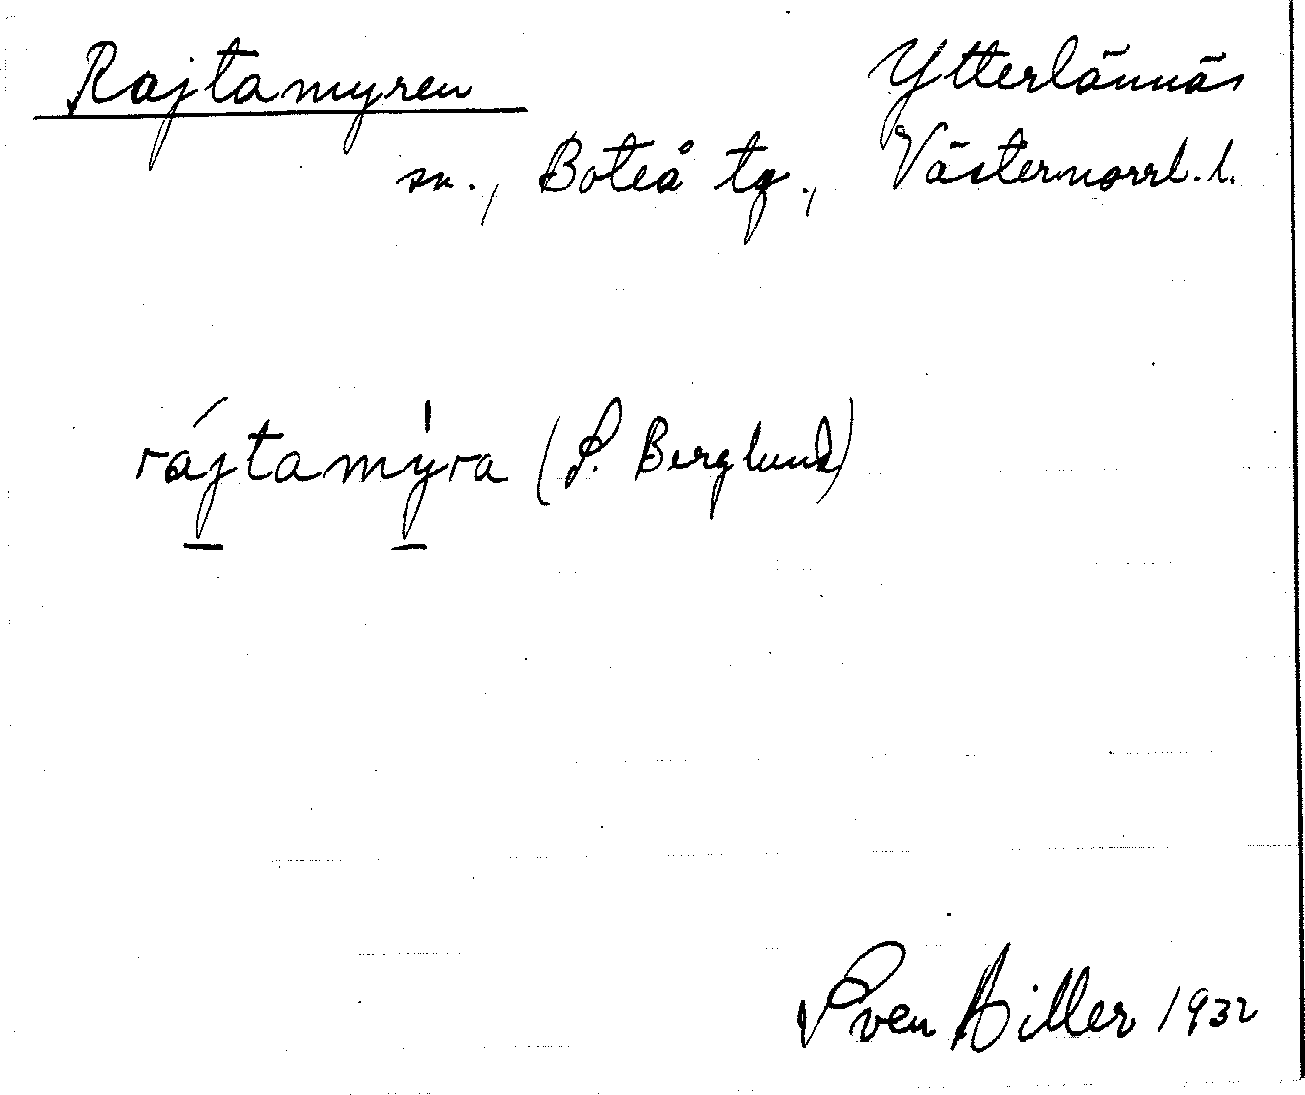 Rajtamyren Ytterlännäs
sn., Boteå tg., Västernorrl. l.
rájtamýra (S. Berglund)
Sven Hiller 1932